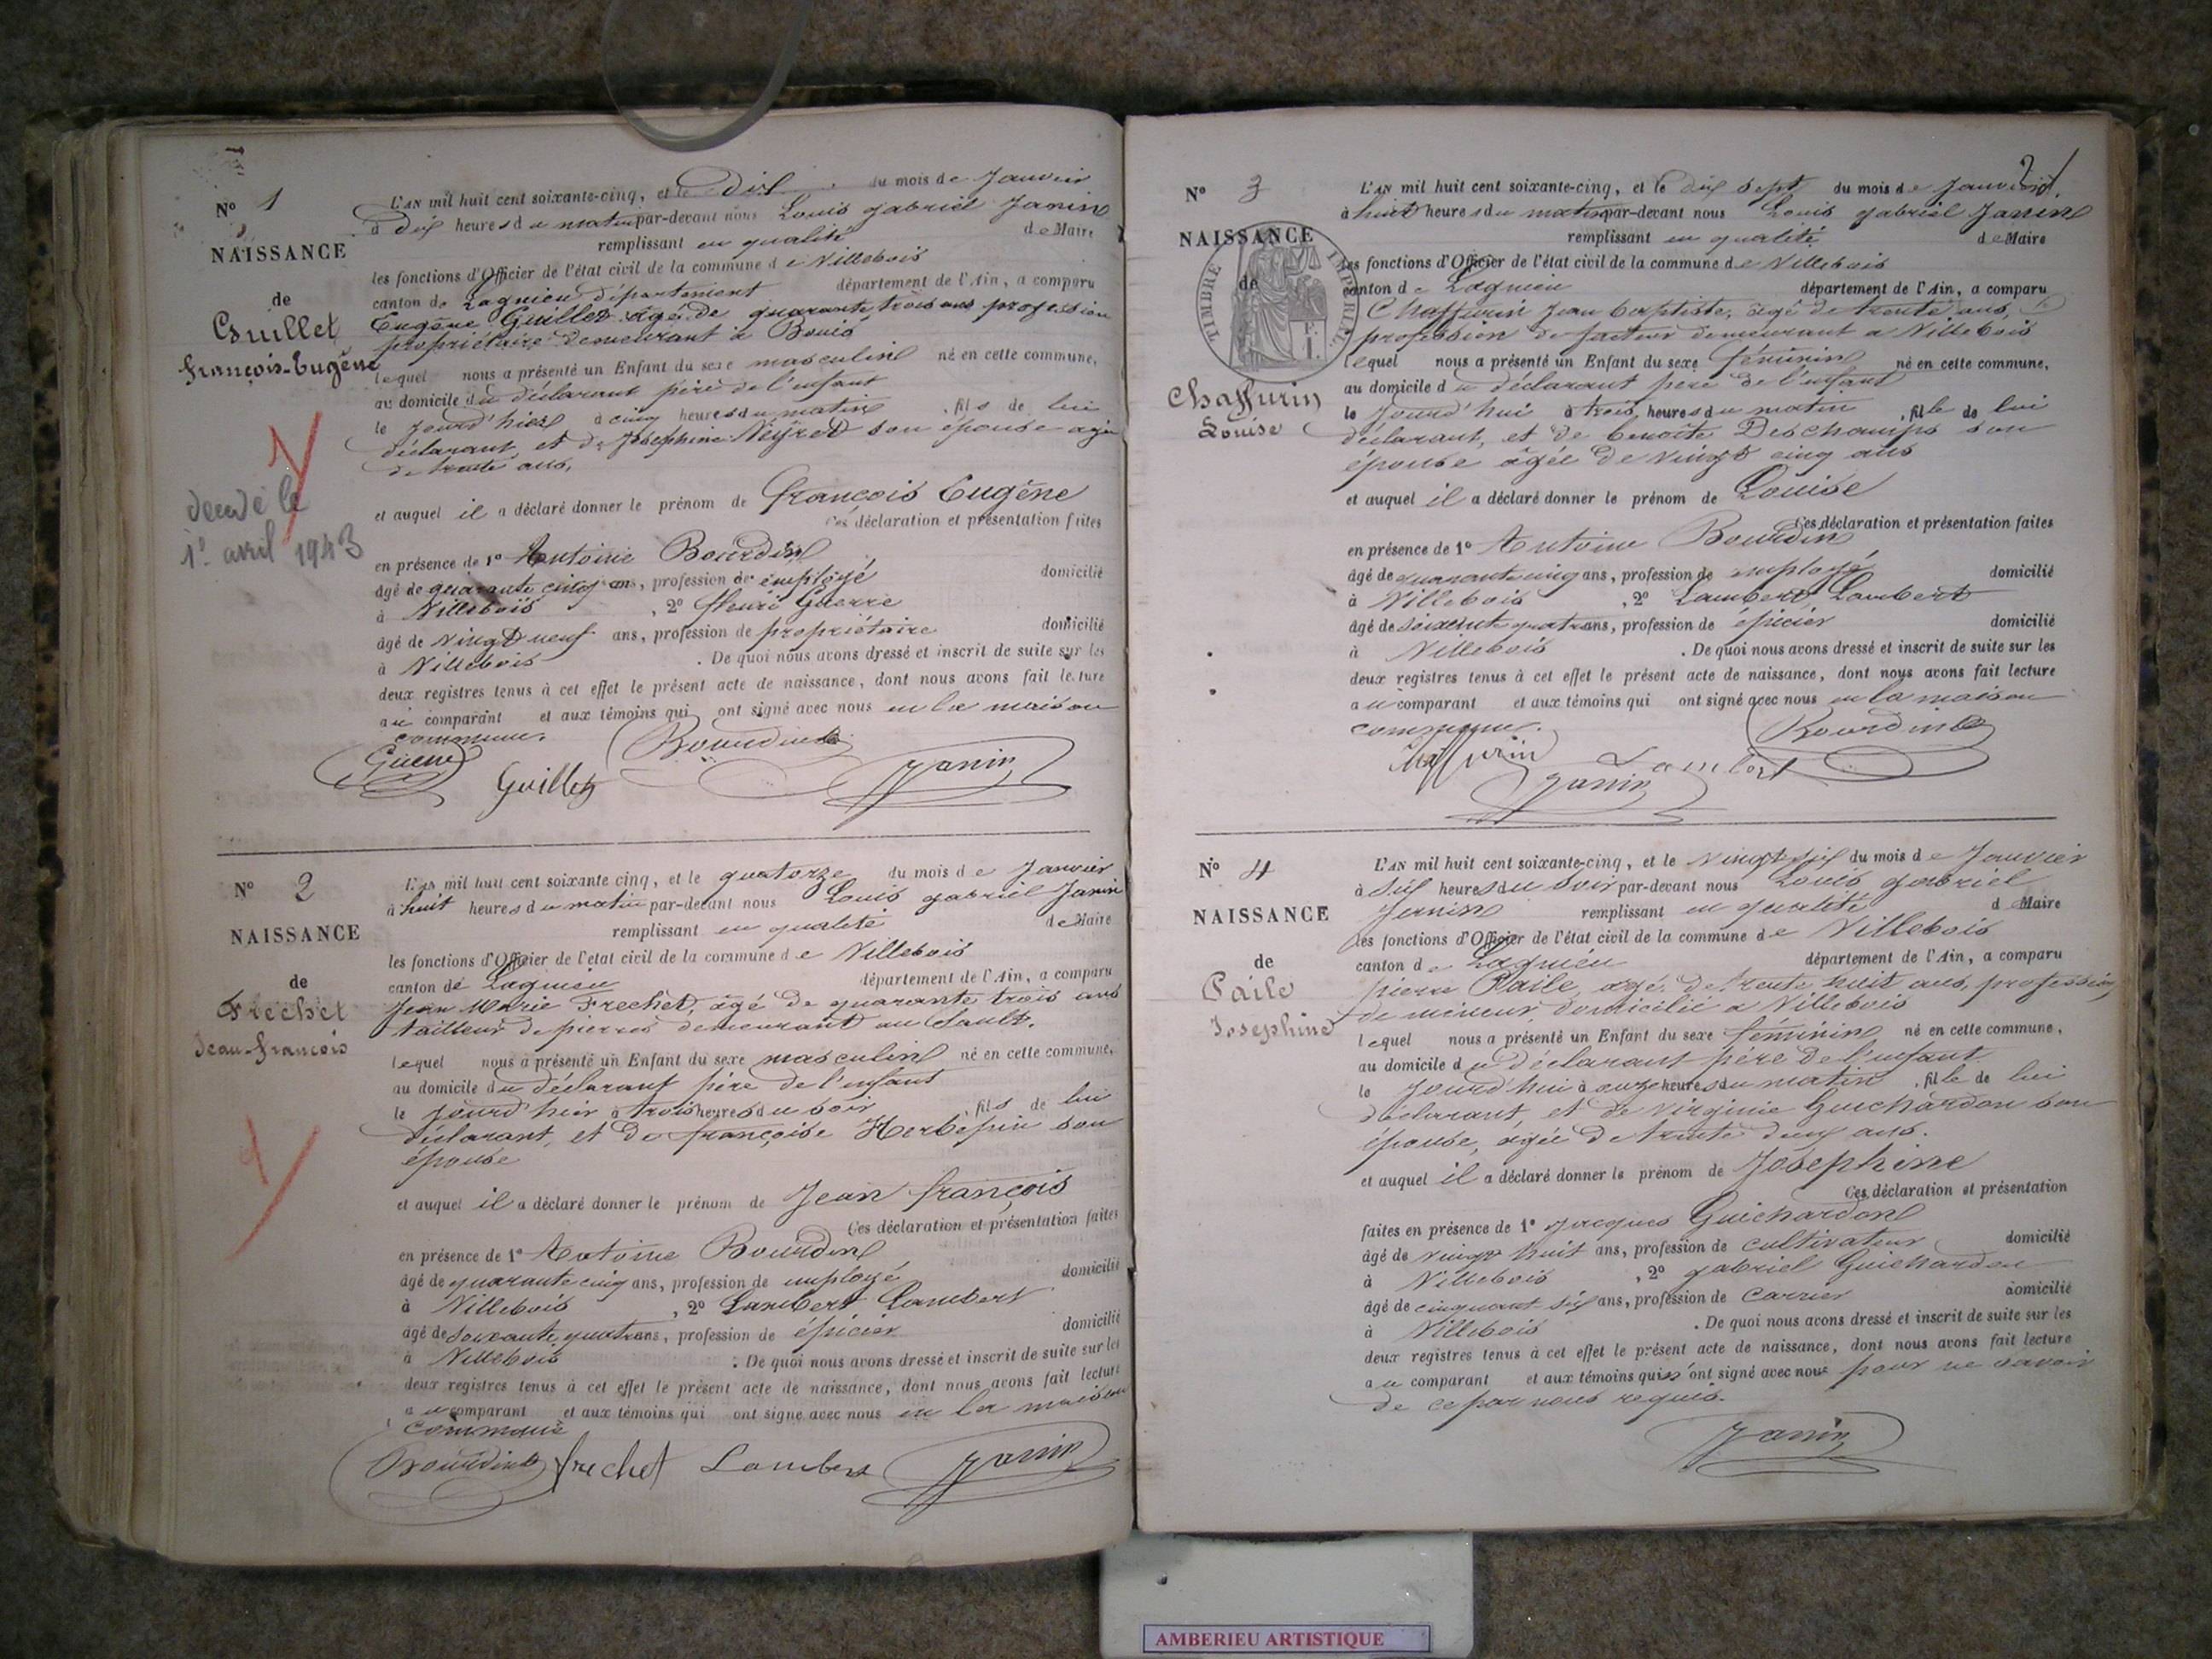 N° 1
NAISSANCE
de
Guillet
François-Eugène
decédé le
1er avril 1943
L'AN mil huit cent soixante-cinq, et le Dix du mois de Janvier
à dix heures du matin par-devant nous Louis gabriel Janin
remplissant en qualité de Maire
les fonctions d'Officier de l'état civil de la commune de Villebois
canton de Lagnieu département département de l'Ain, a comparu
Eugène Guillet âgé de quarante trois ans profession
propriétaire demeurant à Bouis
lequel nous a présenté un Enfant du sexe masculin né en cette commune,
au domicile du déclarant père de l'enfant
le jourd'hier à cinq heures du matin, fils de lui
déclarant, et de Joséphine Neyret son épouse agée
de trente ans.
et auquel il a déclaré donner le prénom de françois Eugène
Ces déclaration et présentation faites
en présence de 1° Antoine Bourdin
âgé de quarante cinq ans, profession de employé domicilié
à Villebois, 2° fleuri Guerre
âgé de vingt neuf ans, profession de propriétaire domicilié
à Villebois. De quoi nous avons dressé et inscrit de suite sur les
deux registres tenus à cet effet le présent acte de naissance, dont nous avons fait lecture
au comparant et aux témoins qui ont signé avec nous en la maison
commune.
Guerre Guillet Bourdin Janin
N° 2
NAISSANCE
de
Frechet
Jean-francois
L'AN mil huit cent soixante cinq, et le quatorze du mois de Janvier
à huit heures du matin par-devant nous Louis gabriel Janin
remplissant en qualité de Maire
les fonctions d'Officier de l'état civil de la commune de Villebois
canton de Lagnieu département de l'Ain, a comparu
Jean Marie Frechet, âgé de quarante trois ans
tailleur de pierres demeurant au Sault.
lequel nous a présenté un Enfant du sexe masculin né en cette commune,
au domicile du déclarant père de l'enfant
le jourd'hier à trois heures du soir, fils de lui
déclarant, et de françoise Herbepin son
épouse
et auquel il a déclaré donner le prénom de Jean françois
Ces déclaration et présentation faites
en présence de 1° Antoine Bourdin
âgé de quarante cinq ans, profession de employé domicilié
à Villebois, 2° Lambert Lambert
âgé de soixante quatre ans, profession de épicier domicilié
à Villebois. De quoi nous avons dressé et inscrit de suite sur les
deux registres tenus à cet effet le présent acte de naissance, dont nous avons fait lecture
au comparant et aux témoins qui ont signé avec nous en la maison
commune
Bourdin frechet Lambert Janin
2
N° 3
NAISSANCE
de
TIMBRE IMPÉRIAL
Chaffurin
Louise
L'AN mil huit cent soixante-cinq, et le dix sept du mois de Janvier
à huit heures du matin par-devant nous Louis gabriel Janin
remplissant en qualité de Maire
les fonctions d'Officier de l'état civil de la commune de Villebois
canton de Lagnieu département de l'Ain, a comparu
Chaffurin Jean baptiste, âgé de trente ans,
profession de facteur demeurant a Villebois
lequel nous a présenté un Enfant du sexe féminin né en cette commune,
au domicile du déclarant père de l'enfant
le jourd'hui à trois heures du matin, fille de lui
déclarant, et de benoîte Deschamps son
épouse âgée de vingt cinq ans
et auquel il a déclaré donner le prénom de Louise
Ces déclaration et présentation faites
en présence de 1° Antoine Bourdin
âgé de quarante cinq ans, profession de employé domicilié
à Villebois, 2° Lambert Lambert
âgé de soixante quatre ans, profession de épicier domicilié
à Villebois. De quoi nous avons dressé et inscrit de suite sur les
deux registres tenus à cet effet le présent acte de naissance, dont nous avons fait lecture
au comparant et aux témoins qui ont signé avec nous en la maison
commune.
Chaffurin Lambert Bourdin
Janin
N° 4
NAISSANCE
de
Paile
Josephine
L'AN mil huit cent soixante-cinq, et le vingt six du mois de Janvier
à six heures du soir par-devant nous Louis gabriel
Janin remplissant en qualité de Maire
les fonctions d'Officier de l'état civil de la commune de Villebois
canton de Lagnieu département de l'Ain, a comparu
pierre Paile, âgé de trente huit ans, profession
de mineur domicilié a Villebois
lequel nous a présenté un Enfant du sexe féminin né en cette commune,
au domicile du déclarant père de l'enfant
le jourd'hui à onze heures du matin, fille de lui
déclarant, et de virginie Guichardon son
épouse, âgée de trente deux ans.
et auquel il a déclaré donner le prénom de Joséphine
Ces déclaration et présentation
faites en présence de 1° Jacques Guichardon
âgé de vingt huit ans, profession de cultivateur domicilié
à Villebois, 2° gabriel Guichardon
âgé de cinquante six ans, profession de Carrier domicilié
à Villebois. De quoi nous avons dressé et inscrit de suite sur les
deux registres tenus à cet effet le présent acte de naissance, dont nous avons fait lecture
au comparant et aux témoins qui n'ont signé avec nous pour ne savoir
de ce par nous requis.
Janin
AMBERIEU ARTISTIQUE